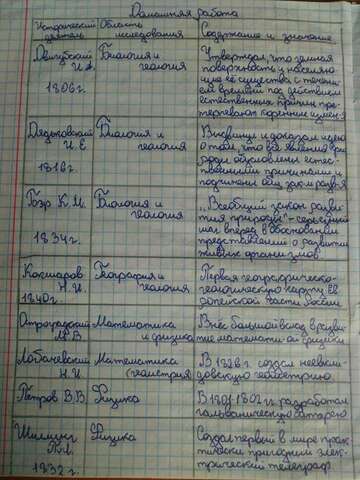 Домашняя работа
Исторический деятель
Области исследования
Содержание и значение
Двигубский
И. А.
1806г.
Биология и
геология
Утверждал, что земная
поверхность и населяю
щие её существа с течени
ем времени под действием
естественных причин пре
терпевают коренные измен-я
Дядьковский
И. Е
1816г.
Биология и
геология
Выдвинул и доказал идею
о том, что все явления при
роды обусловлены естес-
твенными причинами и
подчинены общ. зак-м разв-я
Бэр К. М.
1834г.
Биология и
геология
„Всеобщий закон разви
тия природы" - серьёзный
шаг вперёд в обосновании
представлений о развитии
живых организмов
Кокшаров
Н. И.
1840г.
География и
геология
Первая географическо-
геологическую карту Ев
ропейской части России
Остроградский
М. В
Математика
и физика
Внёс большой вклад в разви
тие математики и физики
Лобачевский
Н. И
Математика
(геометрия)
В 1826г. создал неевкли-
довскую геометрию
Петров В. В.
Физика
В 1801-1802гг. разработал
гальваническую батарею
Шиллинг
П. Л.
1832г.
Физика
Создал первый в мире прак
тически пригодный элек-
трический телеграф